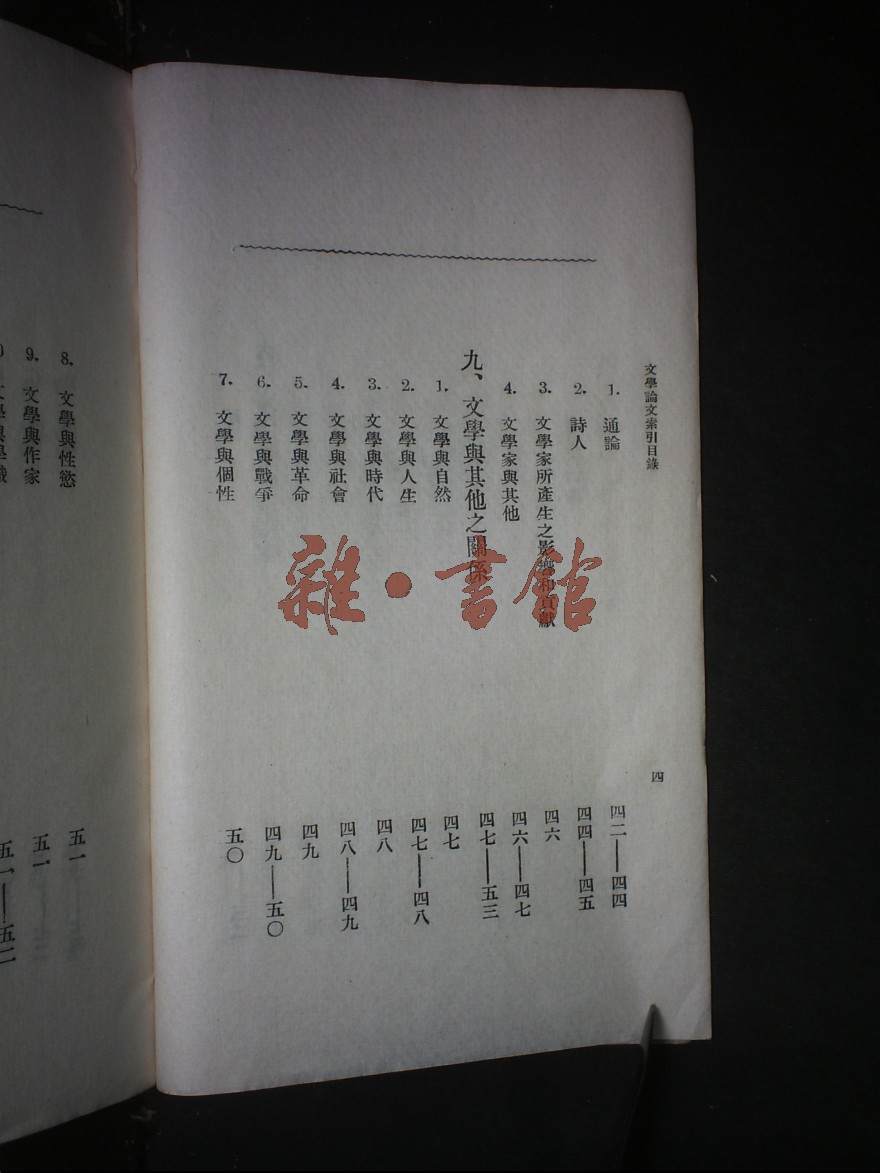 文學論文索引目錄
四
1. 通論 四二——四四
2. 詩人 四四——四五
3. 文學家所產生之影響和貢獻 四六
4. 文學家與其他 四六——四七
九、文學與其他之關係 四七——五三
1. 文學與自然 四七
2. 文學與人生 四七——四八
3. 文學與時代 四八
4. 文學與社會 四八——四九
5. 文學與革命 四九
6. 文學與戰爭 四九——五〇
7. 文學與個性 五〇
8. 文學與性慾 五一
9. 文學與作家 五一
五一——五二
雜·書館